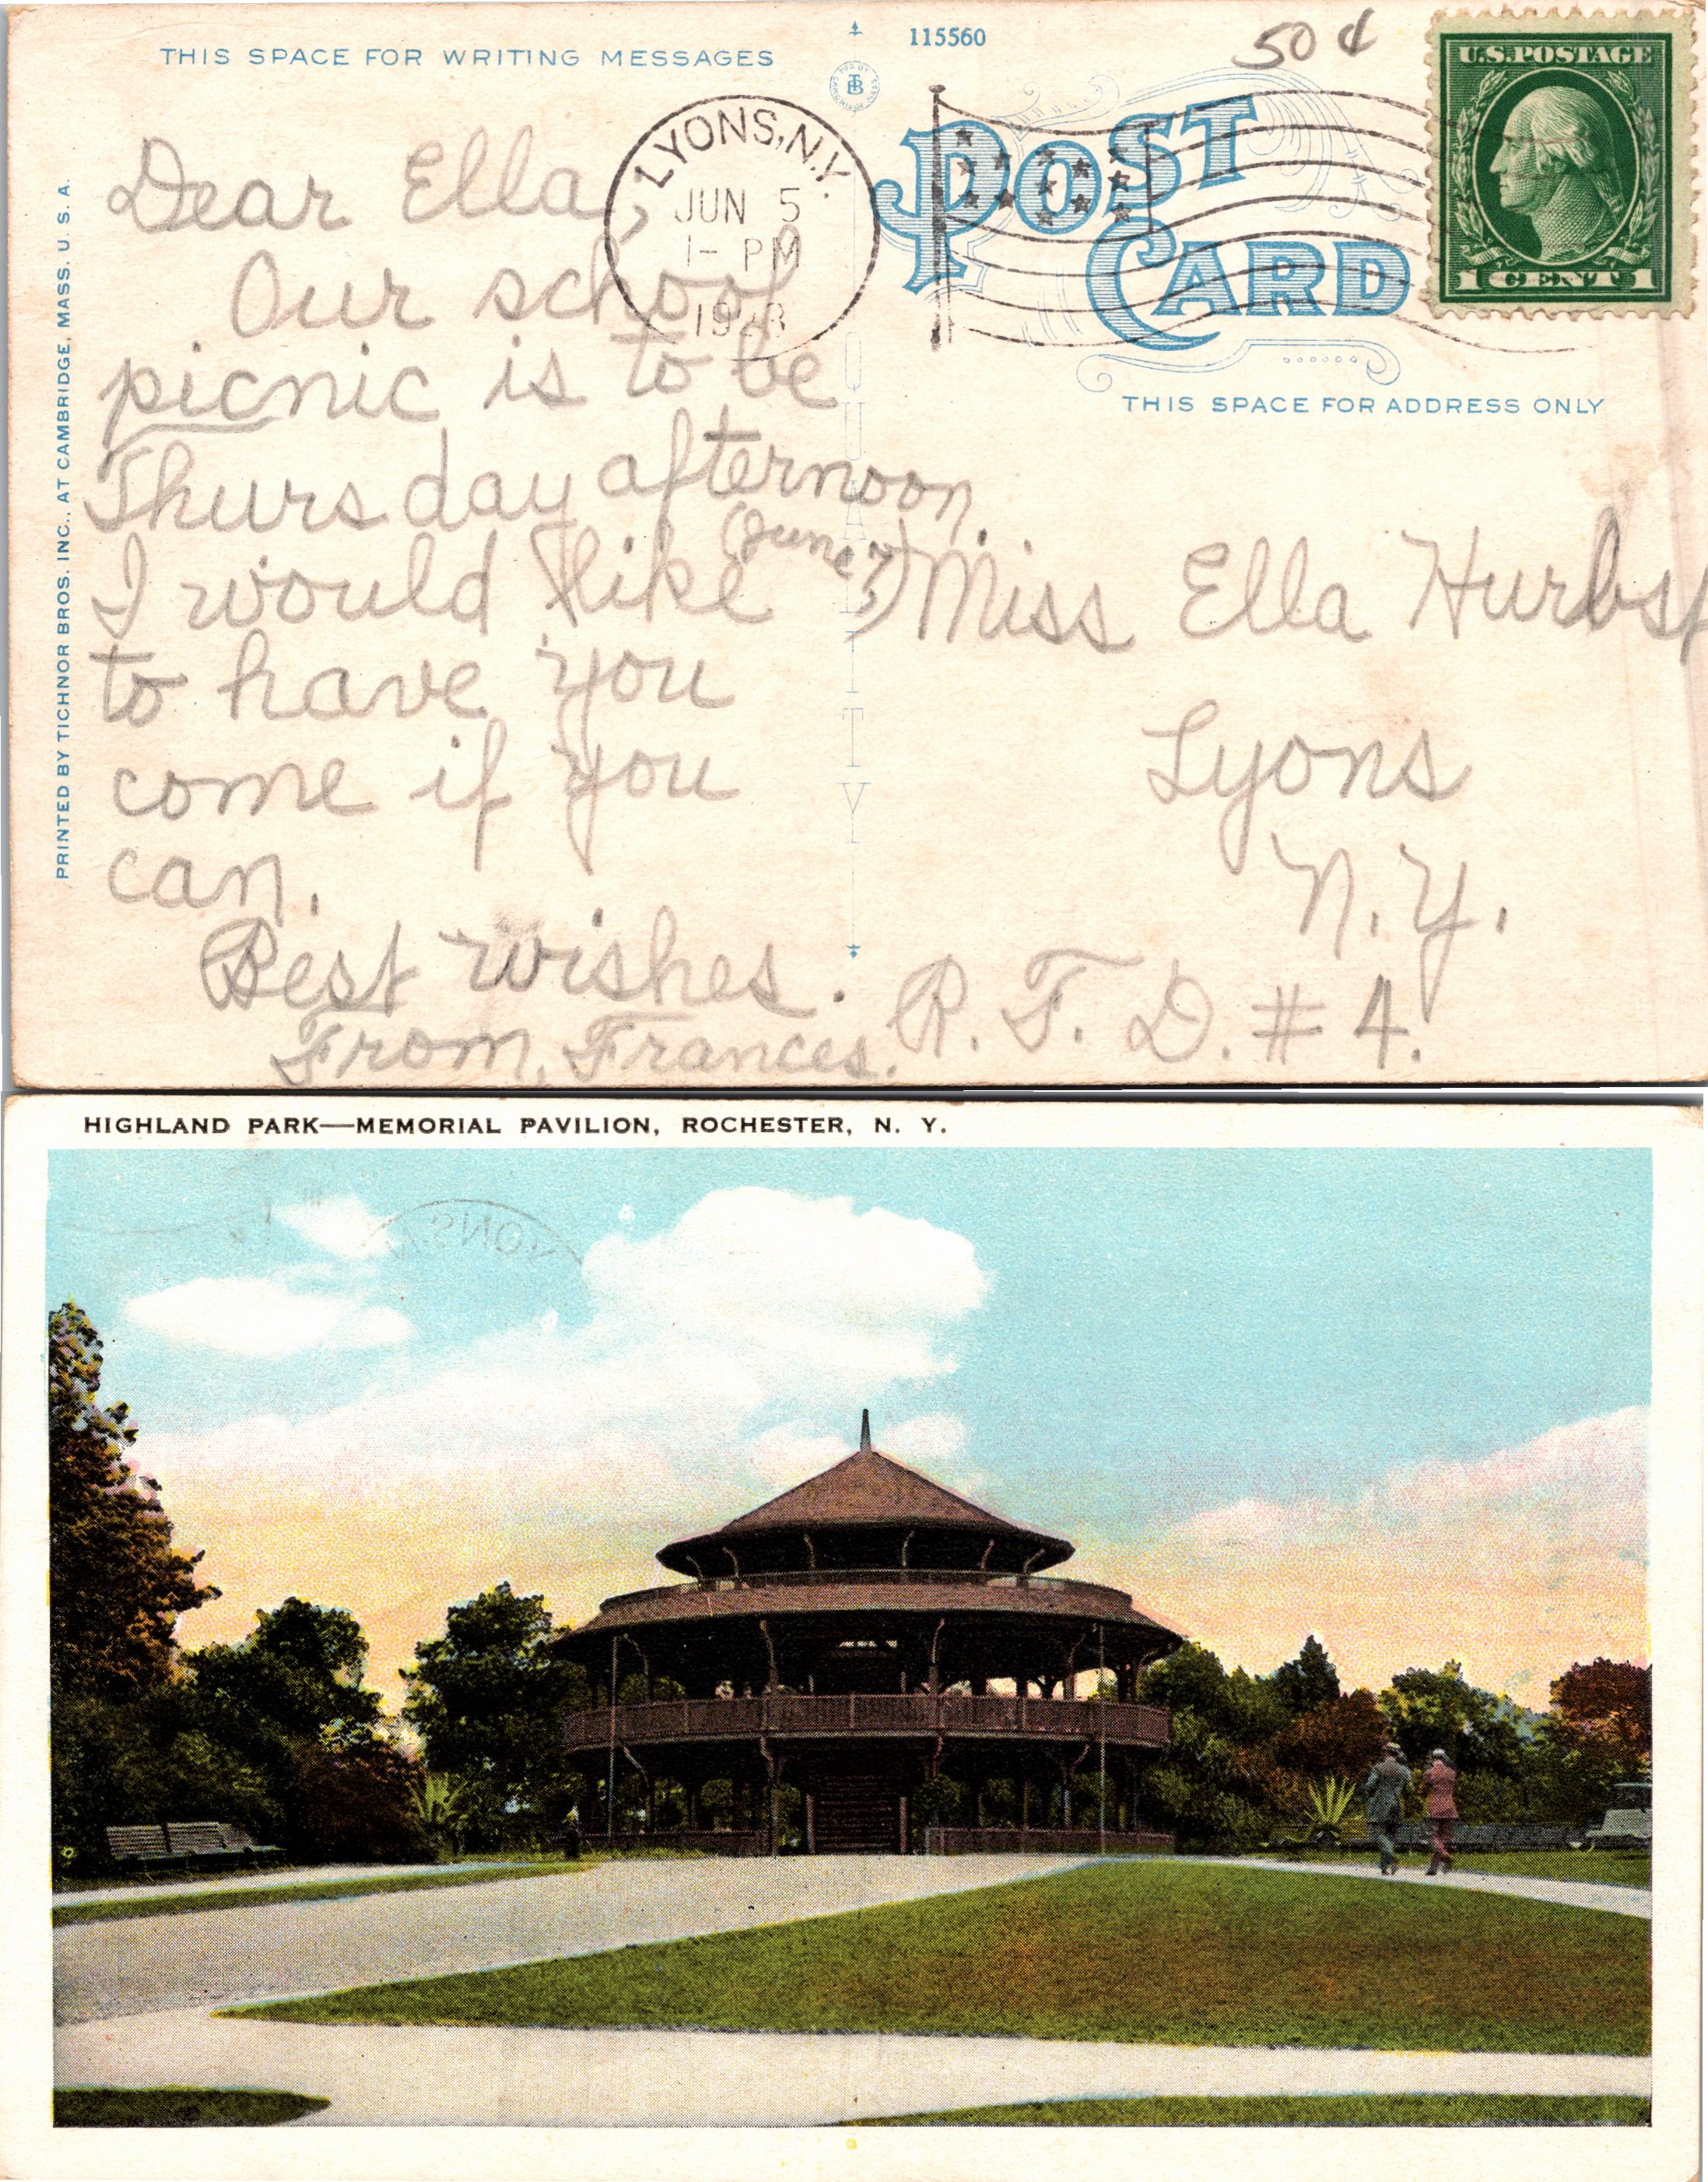 THIS SPACE FOR WRITING MESSAGES
115560
50 ¢
U.S. POSTAGE
1 CENT 1
LYONS, N.Y.
JUN 5
1- PM
POST
CARD
THIS SPACE FOR ADDRESS ONLY
PRINTED BY TICHNOR BROS. INC., AT CAMBRIDGE, MASS. U. S. A.
QUALITY
Dear Ella,
Our school
picnic is to be
Thursday afternoon.
(June 7)
I would like
to have you
come if you
can.
Best wishes.
From, Frances.
Miss Ella
Lyons
N.Y.
R. F. D. # 4.
HIGHLAND PARK—MEMORIAL PAVILION, ROCHESTER, N. Y.